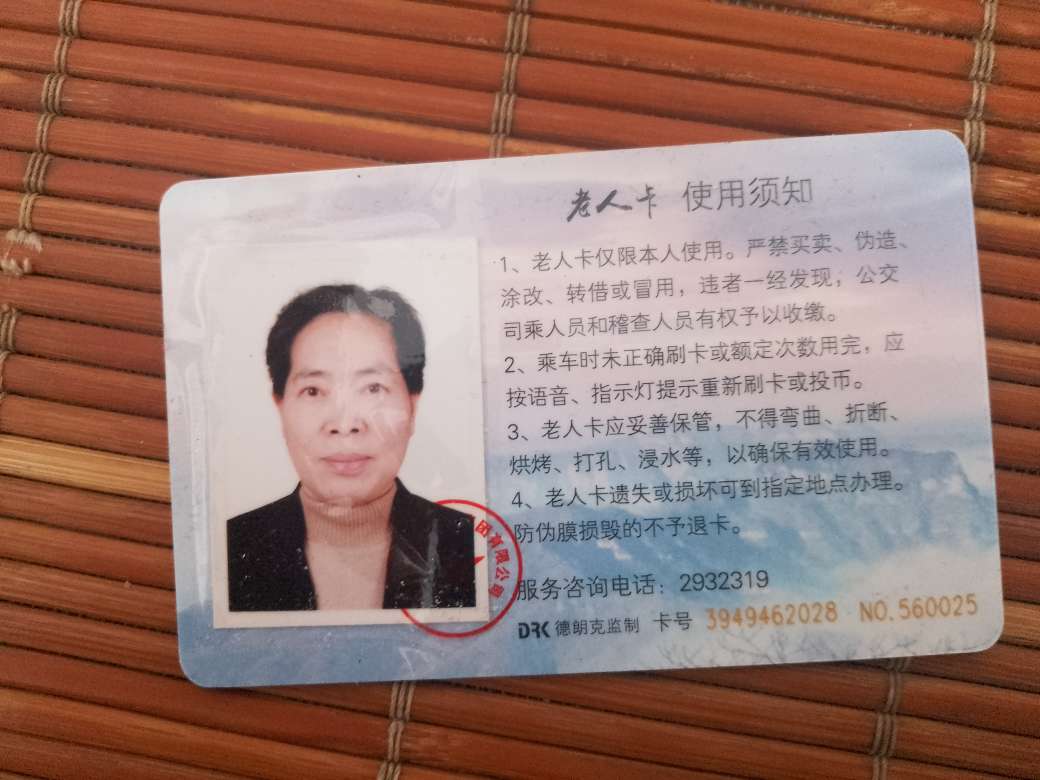 老人卡 使用须知
1、老人卡仅限本人使用。严禁买卖、伪造、
涂改、转借或冒用，违者一经发现，公交
司乘人员和稽查人员有权予以收缴。
2、乘车时未正确刷卡或额定次数用完，应
按语音、指示灯提示重新刷卡或投币。
3、老人卡应妥善保管，不得弯曲、折断、
烘烤、打孔、浸水等，以确保有效使用。
4、老人卡遗失或损坏可到指定地点办理。
防伪膜损毁的不予退卡。
团有限公司
服务咨询电话：2932319
DRK 德朗克监制 卡号 3949462028 NO.560025